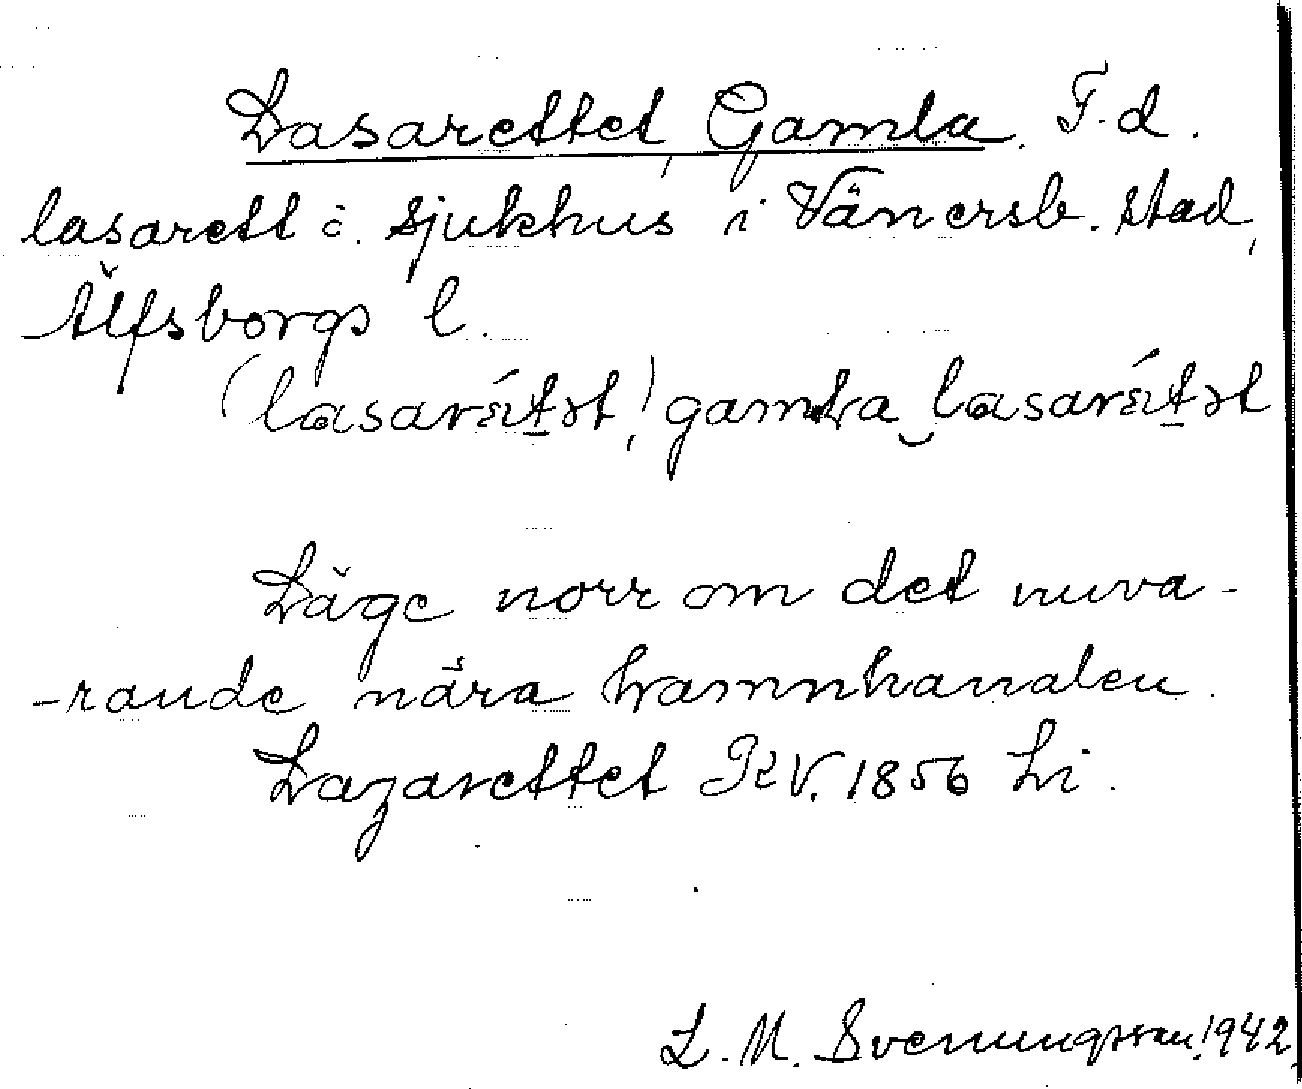 Lasarettet, Gamla. F. d.
lasarett o. sjukhus i Vänersb. stad,
Älfsborgs l.
(lasarétət, gamla‿lasarétət
Läge norr om det nuva-
-rande nära hamnkanalen.
Lazarettet RV. 1856 Li.
L. M. Svenungsson, 1942.